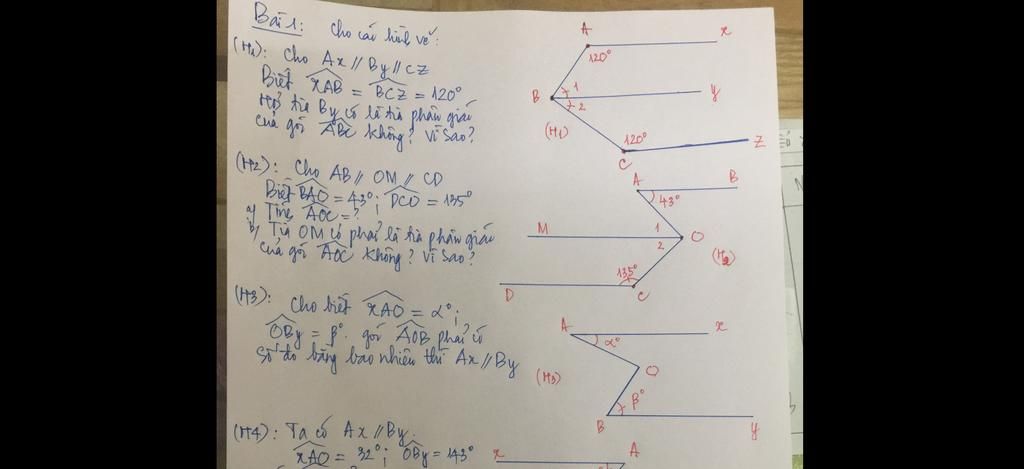 Bài 1: Cho các hình vẽ:
(H1): Cho Ax // By // CZ
Biết xAB = BCZ = 120°
Hỏi tia By có là tia phân giác
của góc ABC không? Vì sao?
A
x
120°
B
1
2
y
(H1)
120°
C
Z
(H2): Cho AB // OM // CD
Biết BAO = 43°; DCO = 135°
a) Tính AOC = ?
b) Tia OM có phải là tia phân giác
của góc AOC không? Vì sao?
A
B
43°
M
1
2
O
(H2)
135°
D
C
(H3): Cho biết xAO = α°;
OBy = β°. góc AOB phải có
số đo bằng bao nhiêu thì Ax // By
A
x
α°
O
(H3)
β°
B
y
(H4): Ta có Ax // By.
xAO = 32°; OBy = 143°
x
A